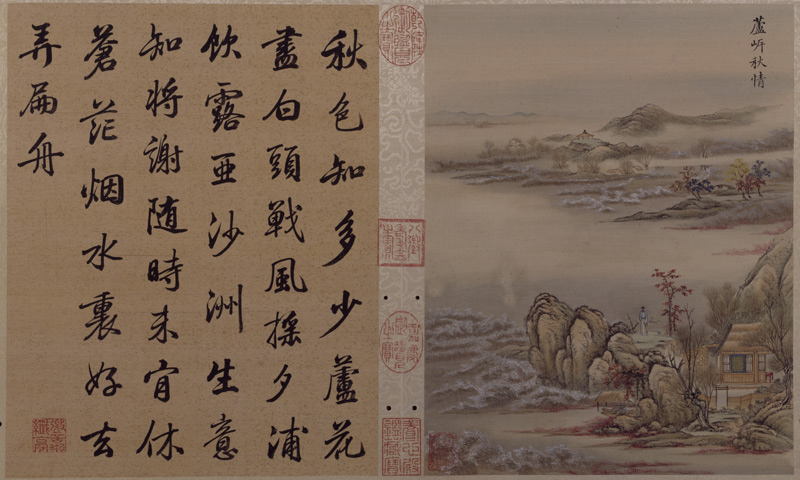 蘆岓秋情
秋色知多少蘆花
盡白頭戰風搖夕浦
飲露亞沙洲生意
知將謝随時未肯休
蒼茫烟水裏好去
弄扁舟